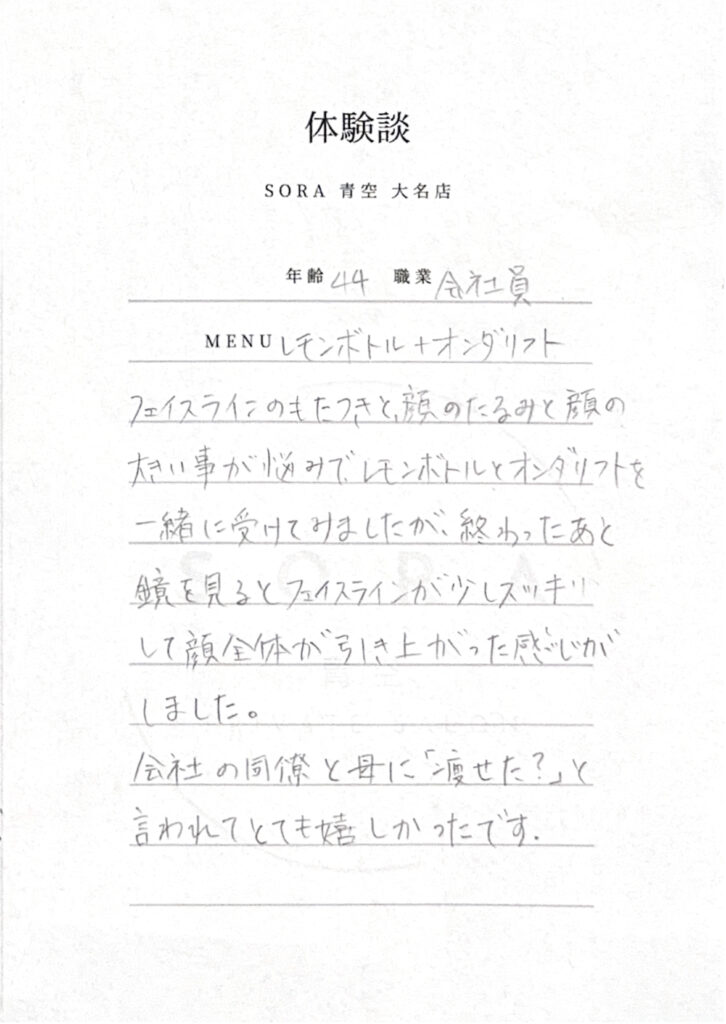 体験談
SORA 青空 大名店
年齢 44 職業 会社員
MENU レモンボトル+オンダリフト
フェイスラインのもたつきと、顔のたるみと顔の
大きい事が悩みで、レモンボトルとオンダリフトを
一緒に受けてみましたが、終わったあと
鏡を見るとフェイスラインが少しスッキリ
して顔全体が引き上がった感じが
しました。
会社の同僚と母に「痩せた?」と
言われてとても嬉しかったです.